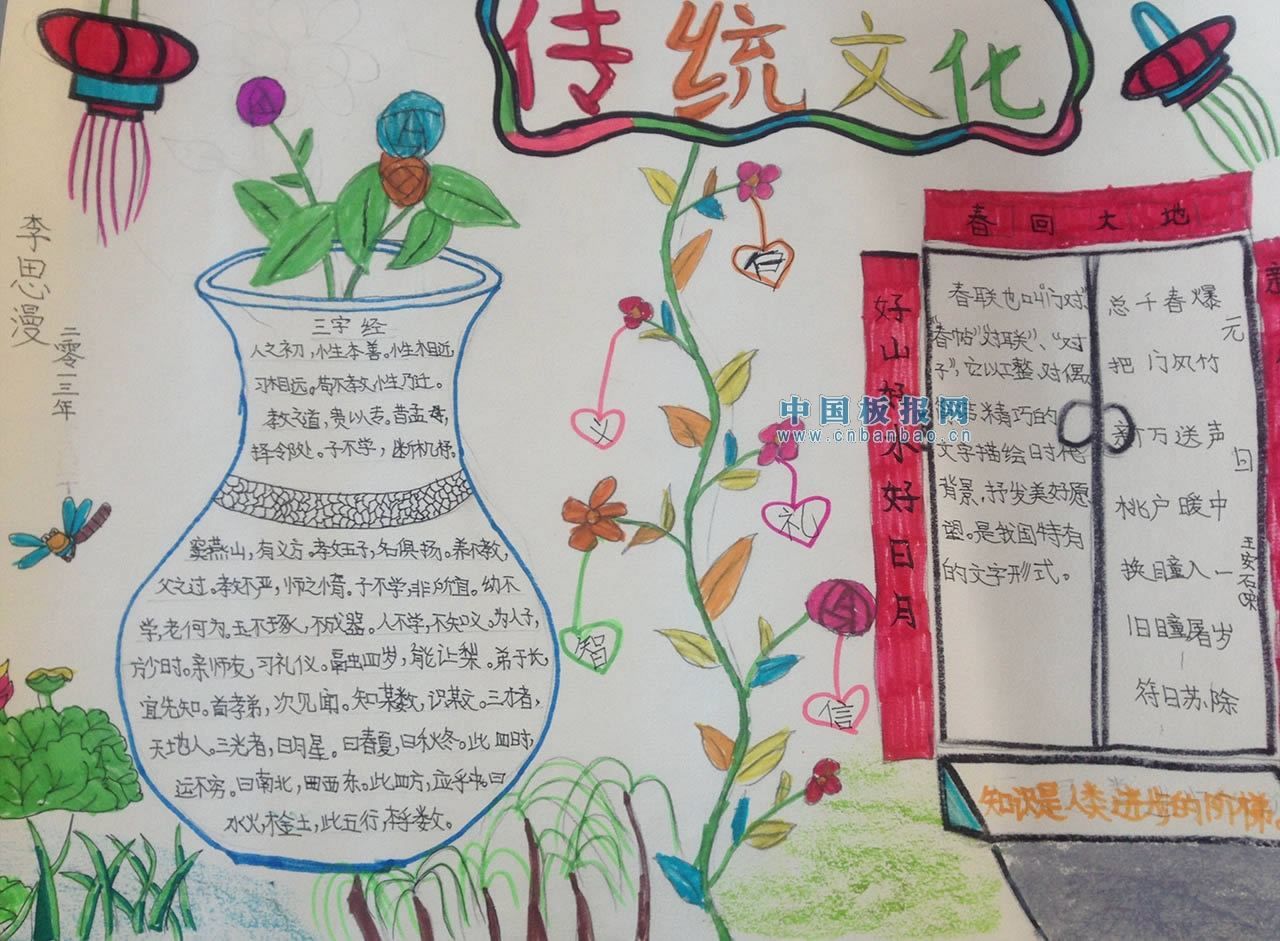 传统文化
李思漫
二零一三年
三字经
人之初，小生本善。小生相近，
习相远。苟不教，小生乃迁。
教之道，贵以专。昔孟母，
择邻处。子不学，断机杼。
窦燕山，有义方。教五子，名俱扬。养不教，
父之过。教不严，师之惰。子不学，非所宜。幼不
学，老何为。玉不琢，不成器。人不学，不知义。为人子，
方少时。亲师友，习礼仪。融四岁，能让梨。弟于长，
宜先知。首孝弟，次见闻。知某数，识某文。三才者，
天地人。三光者，日月星。曰春夏，曰秋冬。此四时，
运不穷。曰南北，曰西东。此四方，应乎中。曰
水火，木金土，此五行，本乎数。
仁
义
礼
智
信
春回大地
好山好水好日月
新
春联也叫“门对”
“春帖”“对联”、“对
子”，它以工整、对偶、
精巧的
文字描绘时代
背景，抒发美好愿
望。是我国特有
的文字形式。
元日
王安石 宋
爆竹声中一岁除
春风送暖入屠苏
千门万户瞳瞳日
总把新桃换旧符
知识是人类进步的阶梯。
中国板报网
www.cnbanbao.cn